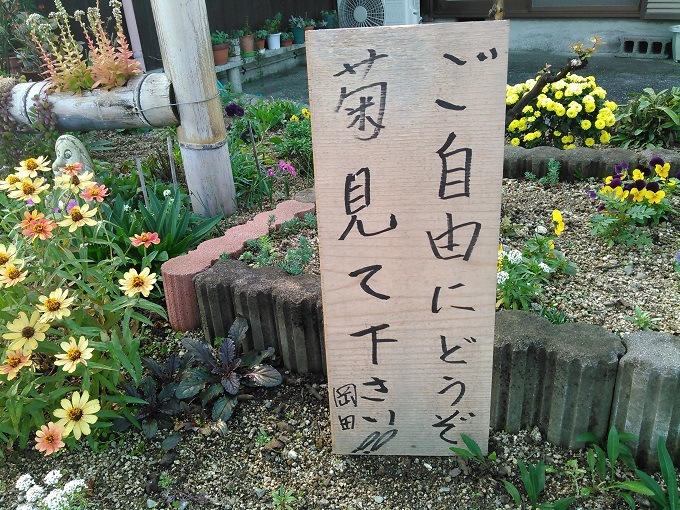 ご自由にどうぞ
菊見て下さい!!
岡田